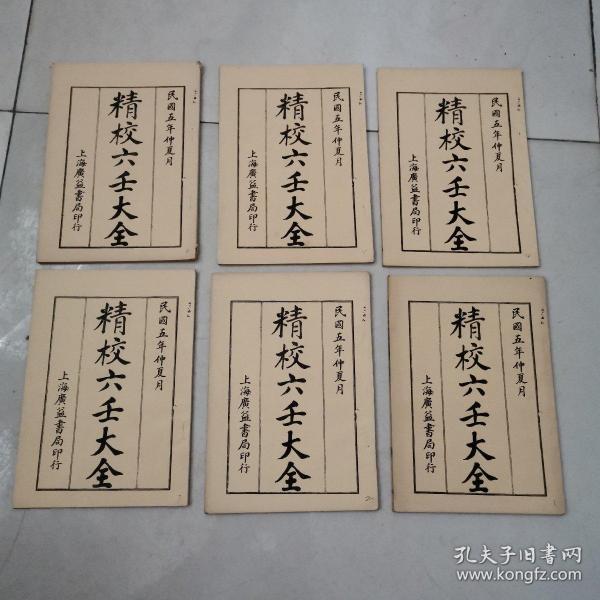 民國五年仲夏月
精校六壬大全
上海廣益書局印行
民國五年仲夏月
精校六壬大全
上海廣益書局印行
民國五年仲夏月
精校六壬大全
上海廣益書局印行
民國五年仲夏月
精校六壬大全
上海廣益書局印行
民國五年仲夏月
精校六壬大全
上海廣益書局印行
民國五年仲夏月
精校六壬大全
上海廣益書局印行
孔夫子旧书网
www.kongfz.com